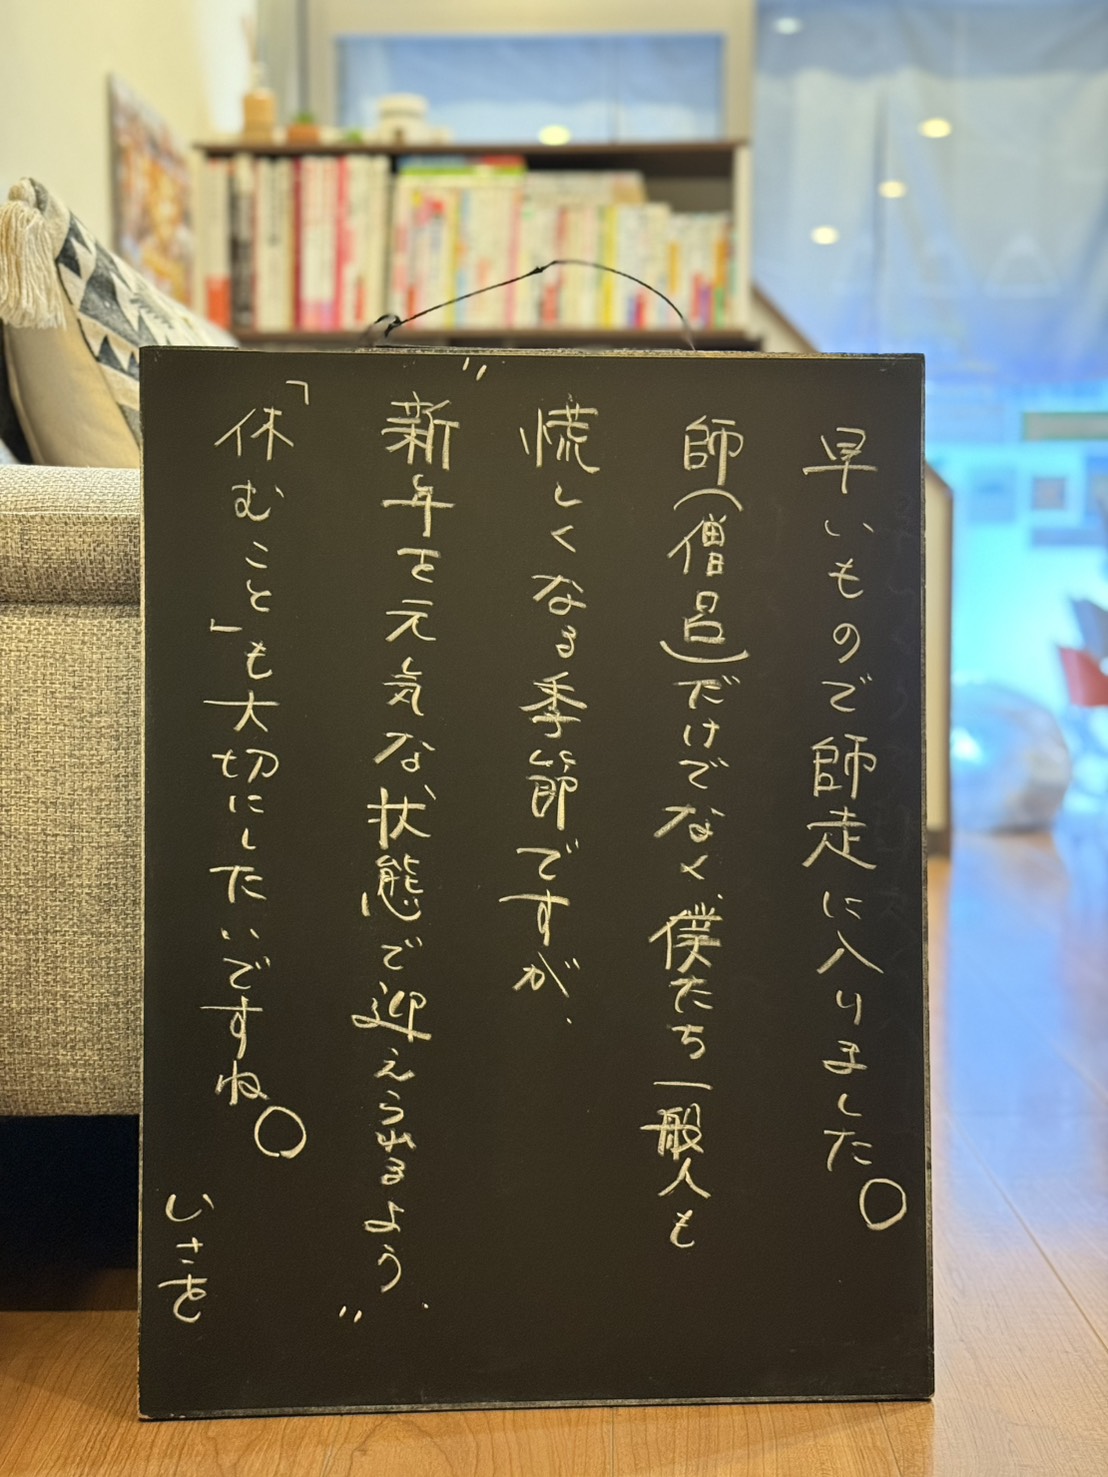 早いもので師走に入りました。
師(僧呂)だけでなく、僕たち一般人も
慌しくなる季節ですが、
"新年を元気な状態で迎えられるよう、"
「休むこと」も大切にしたいですね。
いさを